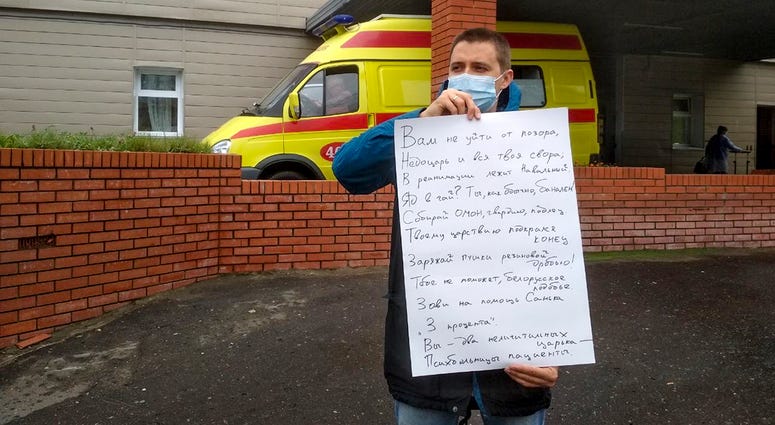 Вам не уйти от позора,
Недоцарь и вся твоя свора,
В реанимации лежит Навальный
Яд в чай? Ты, как обычно, банален
Собирай ОМОН, гвардию, подлец
Твоему царствию подкрался
конец
Заряжай пушки резиновой
дробью!
Тебе не поможет, белорусское
подобье
Зови на помощь Санька
„3 процента".
Вы – два нелигитимных
царька –
Психбольницы пациенты.